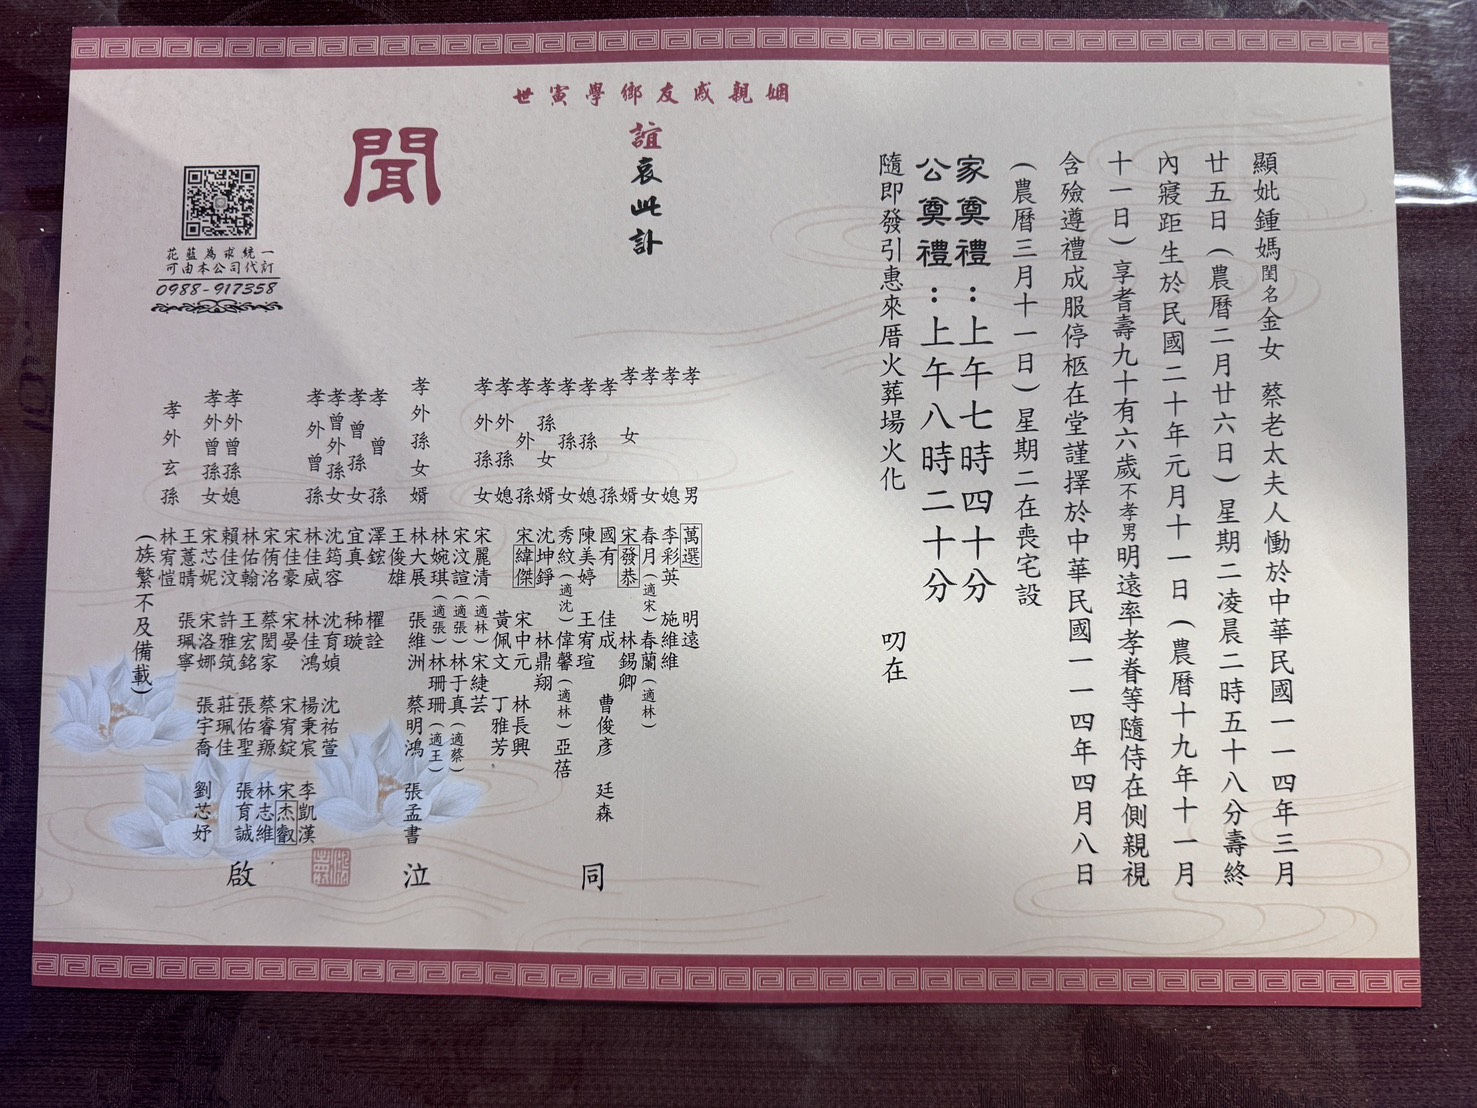 顯妣鍾媽閨名金女 蔡老太夫人慟於中華民國一一四年三月
廿五日(農曆二月廿六日)星期二凌晨二時五十八分壽終
內寢距生於民國二十年元月十一日(農曆十九年十一月
十一日)享耆壽九十有六歲不孝男明遠率孝眷等隨侍在側親視
含殮遵禮成服停柩在堂謹擇於中華民國一一四年四月八日
(農曆三月十一日)星期二在喪宅設
家奠禮:上午七時四十分
公奠禮:上午八時二十分
隨即發引惠來厝火葬場火化 叨在
世寅學鄉友戚親姻
誼哀此訃
聞
孝男 萬選 明遠
孝媳 李彩英 施維維
孝女 春月(適宋) 春蘭(適林)
孝女婿 宋發恭 林錫卿
孝孫 國有 佳成 曹俊彥 廷森
孝孫媳 陳美婷 王宥瑄
孝孫女 秀紋(適沈) 偉馨(適林) 亞蓓
孝孫女婿 沈坤錚 林鼎翔
孝外孫 宋緯傑 宋中元 林長興
孝外孫媳 黃佩文 丁雅芳
孝外孫女 宋麗清(適林) 宋緁芸
宋汶諠(適張) 林于真(適蔡)
林婉琪(適張) 林珊珊(適王)
孝外孫女婿 林大展 張維洲 蔡明鴻 張孟書
王俊雄
孝曾孫 澤鋐 櫂詮
孝曾孫女 宜真 秭璇
孝曾外孫女 沈筠容 沈育媜 沈祐萱
孝外曾孫 林佳威 林佳鴻 楊秉宸 李凱漢
宋佳豪 宋晏 宋宥錠 宋杰叡
宋侑洺 蔡閎家 蔡睿嫄 林志維
林佑翰 王宏銘 張佑聖 張育誠
孝外曾孫媳 賴佳汶 許雅筑 莊珮佳
孝外曾孫女 宋芯妮 宋洛娜 張宇喬 劉芯妤
王薏晴 張珮寧
孝外玄孫 林宥愷
(族繁不及備載)
同
泣
啟
花藍為求統一
可由本公司代訂
0988-917358